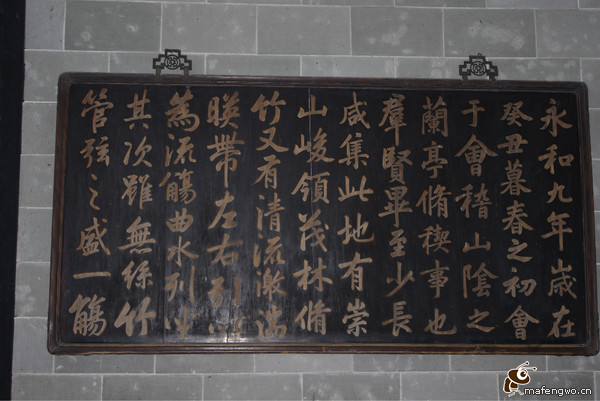 永和九年歲在
癸丑暮春之初會
于會稽山陰之
蘭亭脩禊事也
羣賢畢至少長
咸集此地有崇
山峻領茂林脩
竹又有清流激湍
暎帶左右引以
為流觴曲水列坐
其次雖無絲竹
管弦之盛一觴
mafengwo.cn